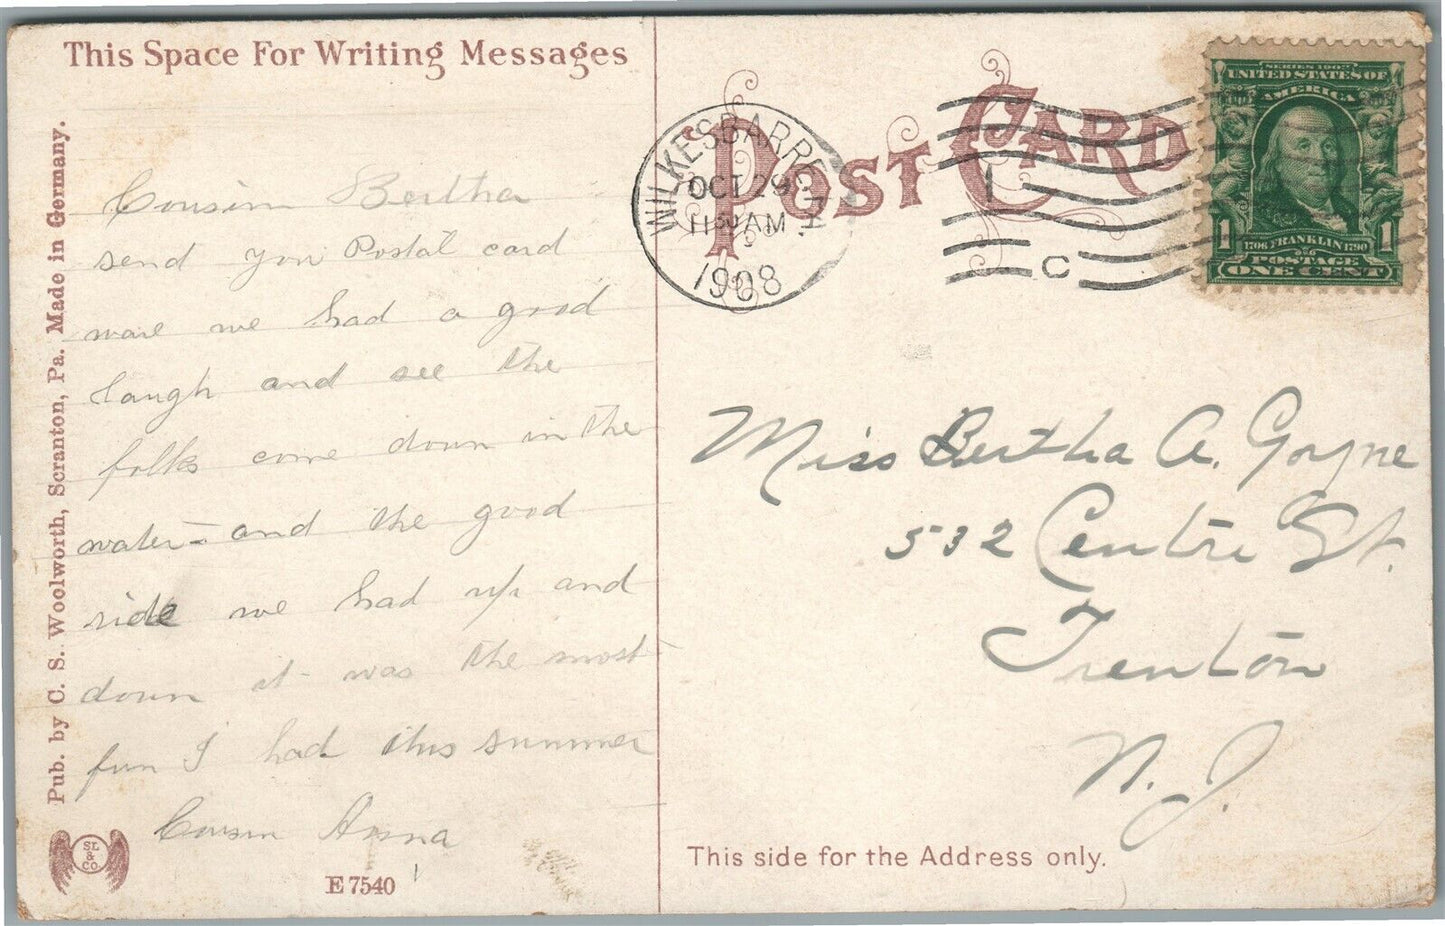 This Space For Writing Messages
Cousin Bertha
send you Postal card
ware we had a good
laugh and see the
folks come down in the
water - and the good
ride we had up and
down it was the most
fun I had this summer
Cousin Anna
Pub. by C. S. Woolworth, Scranton, Pa. Made in Germany.
SL
&
CO
E 7540
POST CARD
WILKESBARRE
OCT 29
11 30 AM
1908
C
SERIES 1902
UNITED STATES OF
AMERICA
1 1
1706 FRANKLIN 1790
POSTAGE
ONE CENT
Miss Bertha A. Goyne
532 Centre St.
Trenton
N. J.
This side for the Address only.